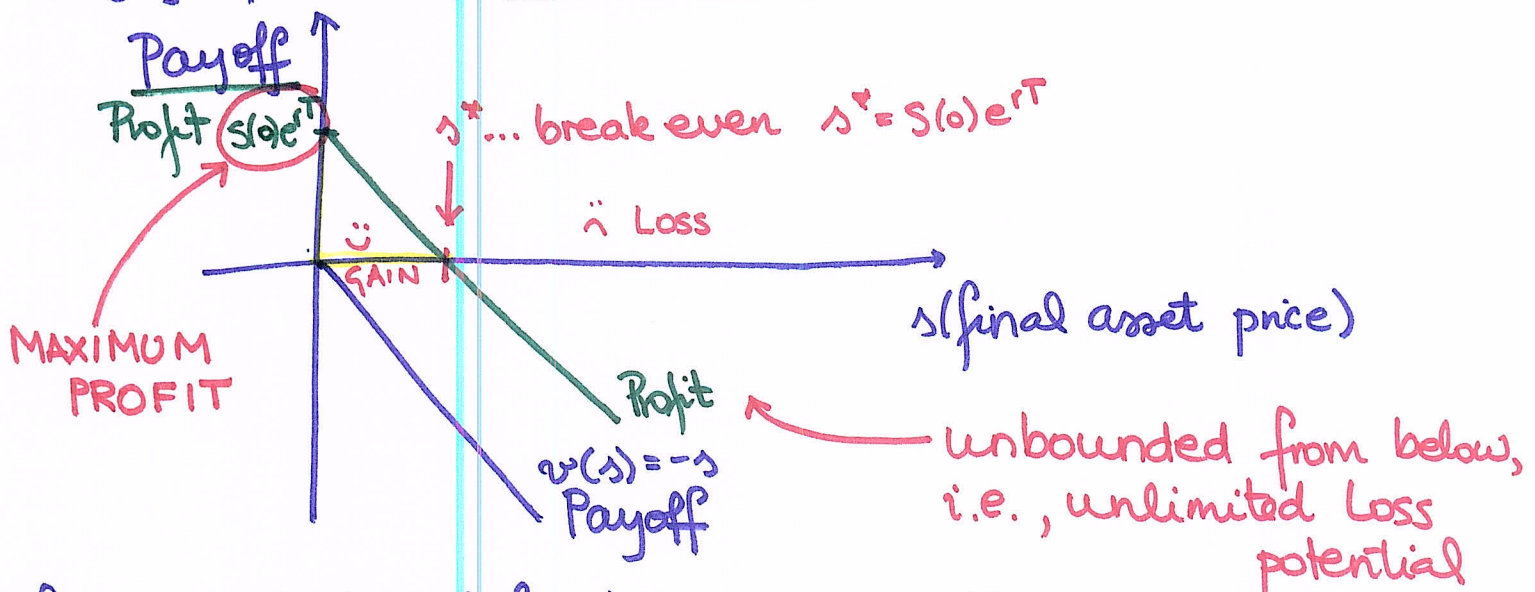 Payoff
Profit S(0)e^{rT}
s* ... break even s* = S(0)e^{rT}
¨⌢ Loss
¨⌣
GAIN
s (final asset price)
MAXIMUM
PROFIT
Profit
v(s) = -s
Payoff
unbounded from below,
i.e., unlimited Loss
potential